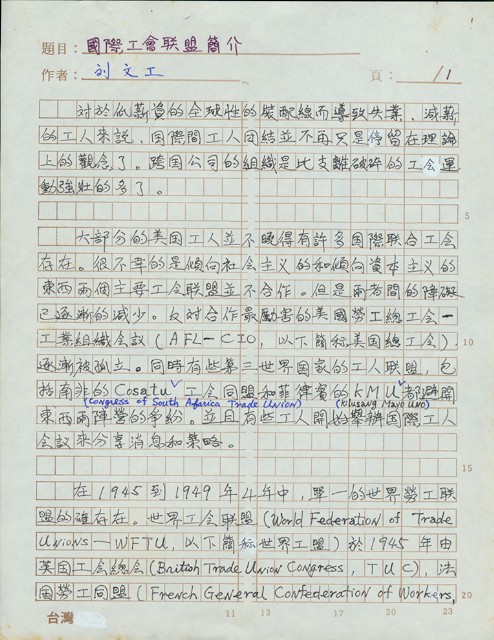 題目：國際工會联盟簡介
作者：刘文工 頁：/1
对於低薪資的全球性的裝配線而導致失業、減薪
的工人來説，国際間工人団結並不再只是停留在理論
上的觀念了。跨国公司的組織是比支離破碎的工会運
動強壯的多了。
5
大部分的美国工人並不曉得有許多国際联合工会
存在。很不幸的是傾向社会主义的和傾向資本主义的
東西兩個主要工会联盟並不合作。但是兩者間的障礙
已逐漸的減少。反对合作最勵害的美國勞工總工会一
工業組織会議（AFL-CIO，以下簡称美国總工会）， 10
逐漸被孤立。同時有些第三世界国家的工人联盟，包
括南非的Cosatu工会同盟和菲律賓的KMU都避開
(Congress of South Africa Trade Union) (Kilusang Mayo Uno)
東西兩陣營的爭紛。並且有些工人開始舉辦国際工人
会議來分享消息和策略。
15
在1945到1949年4年中，單一的世界勞工联
盟的確存在。世界工会联盟（World Federation of Trade
Unions—WFTU，以下簡称世界工盟）於1945年由
英国工会總会(British Trade Union Congress, TUC)，法
国勞工同盟（French General Confederation of Workers, 20
台灣 11 13 17 20 23